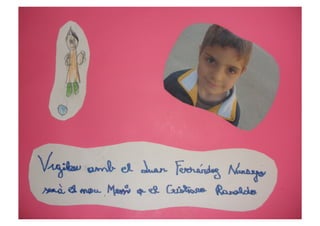 Vigileu amb el Juan Fernández Naranjo
serà el nou Messi o el Cristiano Ronaldo